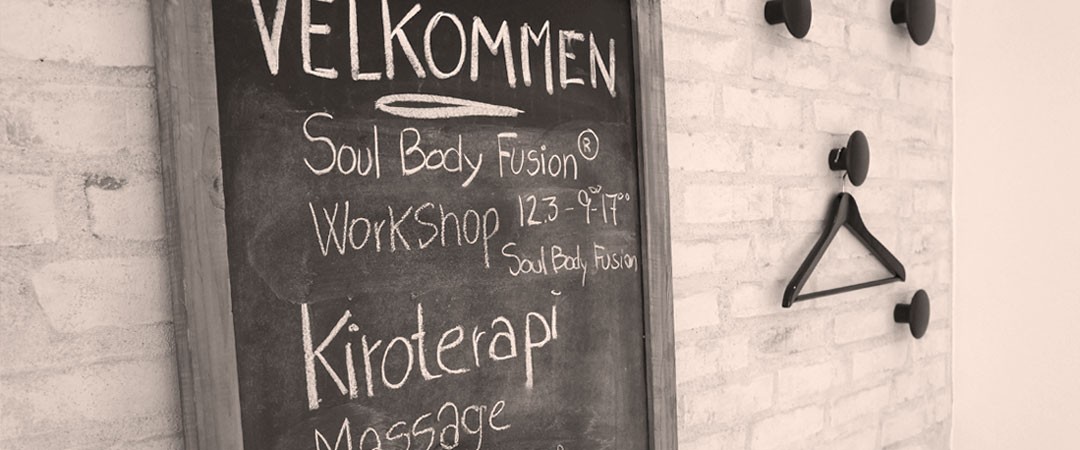 VELKOMMEN
Soul Body Fusion®
Workshop 12.3 - 9⁰⁰-17⁰⁰
Soul Body Fusion
Kiroterapi
Massage